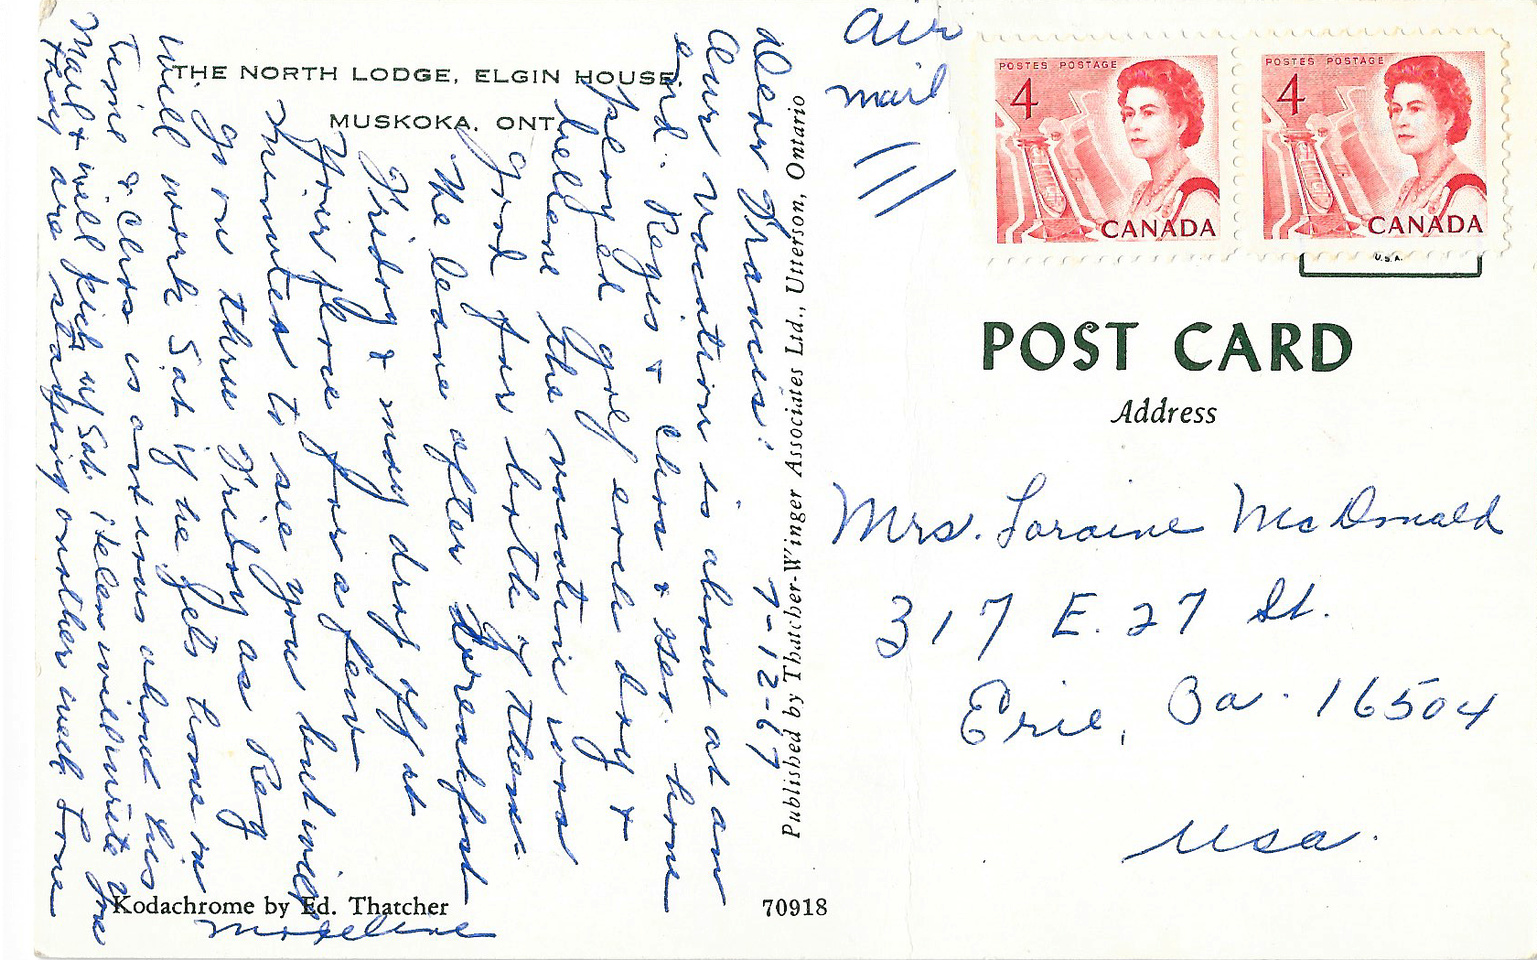 THE NORTH LODGE, ELGIN HOUSE
MUSKOKA, ONT.
7-12-67
Dear Frances:
Our vacation is about at an
end. Regis & Chas & Geo. have
played golf each day &
believe the vacation was
good for both of them.
We leave after Breakfast
Friday & may drop off at
Your place for a few
minutes to see you but will
go on thru Friday as Reg
will work Sat if he gets home in
time & Chas is anxious about his
Mail & will pick up Sat. Helen will write you
They are staying another week Love
Madeline
Kodachrome by Ed. Thatcher
70918
Published by Thatcher-Winger Associates Ltd., Utterson, Ontario
air
mail
POSTES POSTAGE
4
CANADA
POSTES POSTAGE
4
CANADA
U.S.A.
POST CARD
Address
Mrs. Loraine McDonald
317 E. 27 St.
Erie, Pa. 16504
USA.